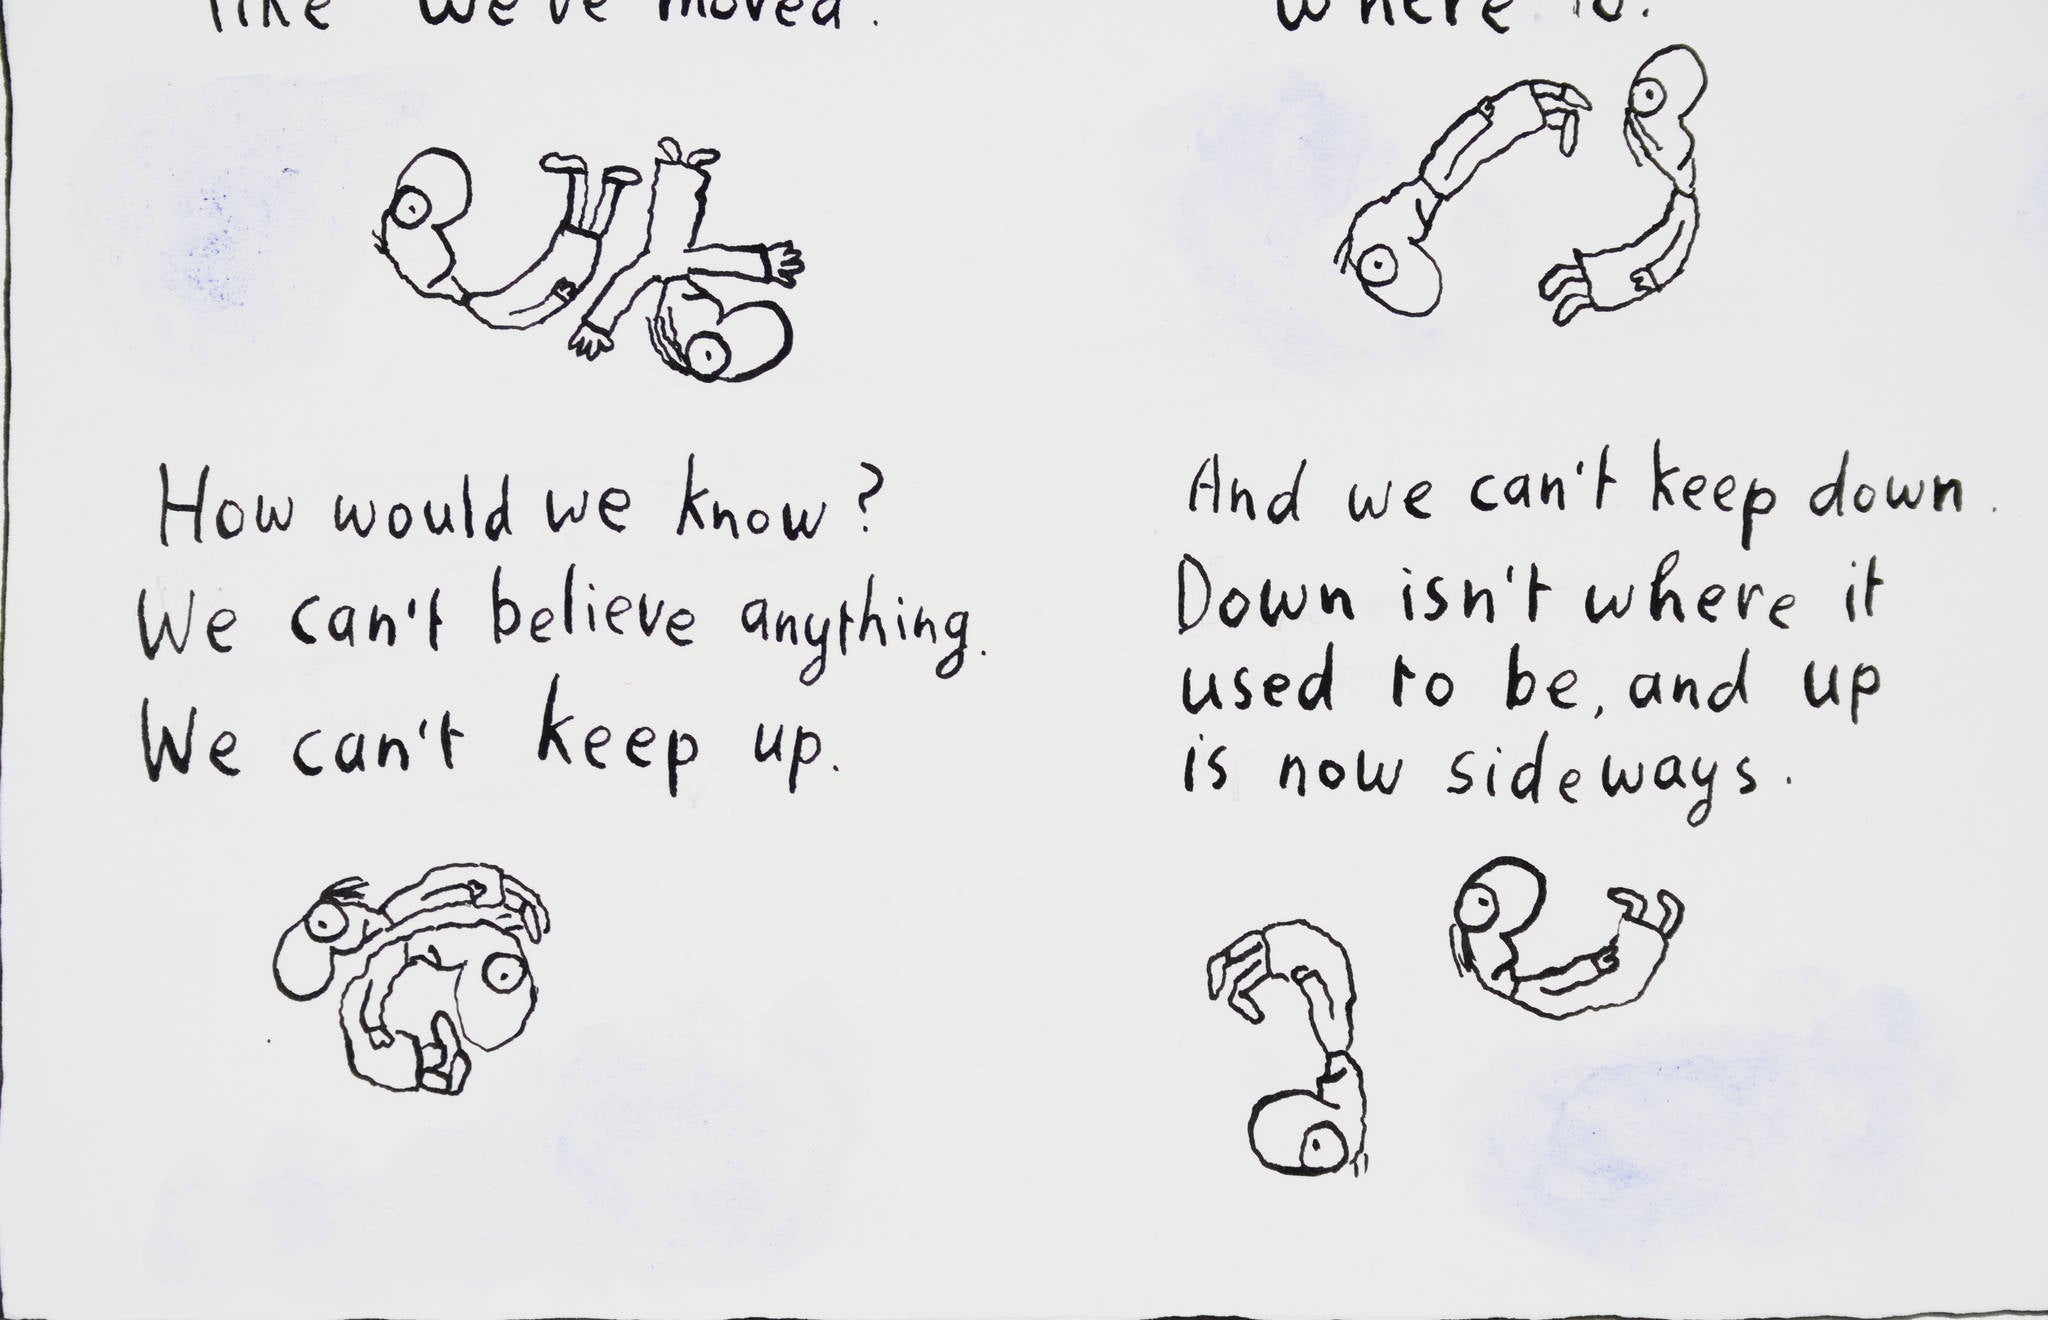 like we've moved.
where to.
How would we know?
We can't believe anything.
We can't keep up.
And we can't keep down.
Down isn't where it
used to be, and up
is now sideways.